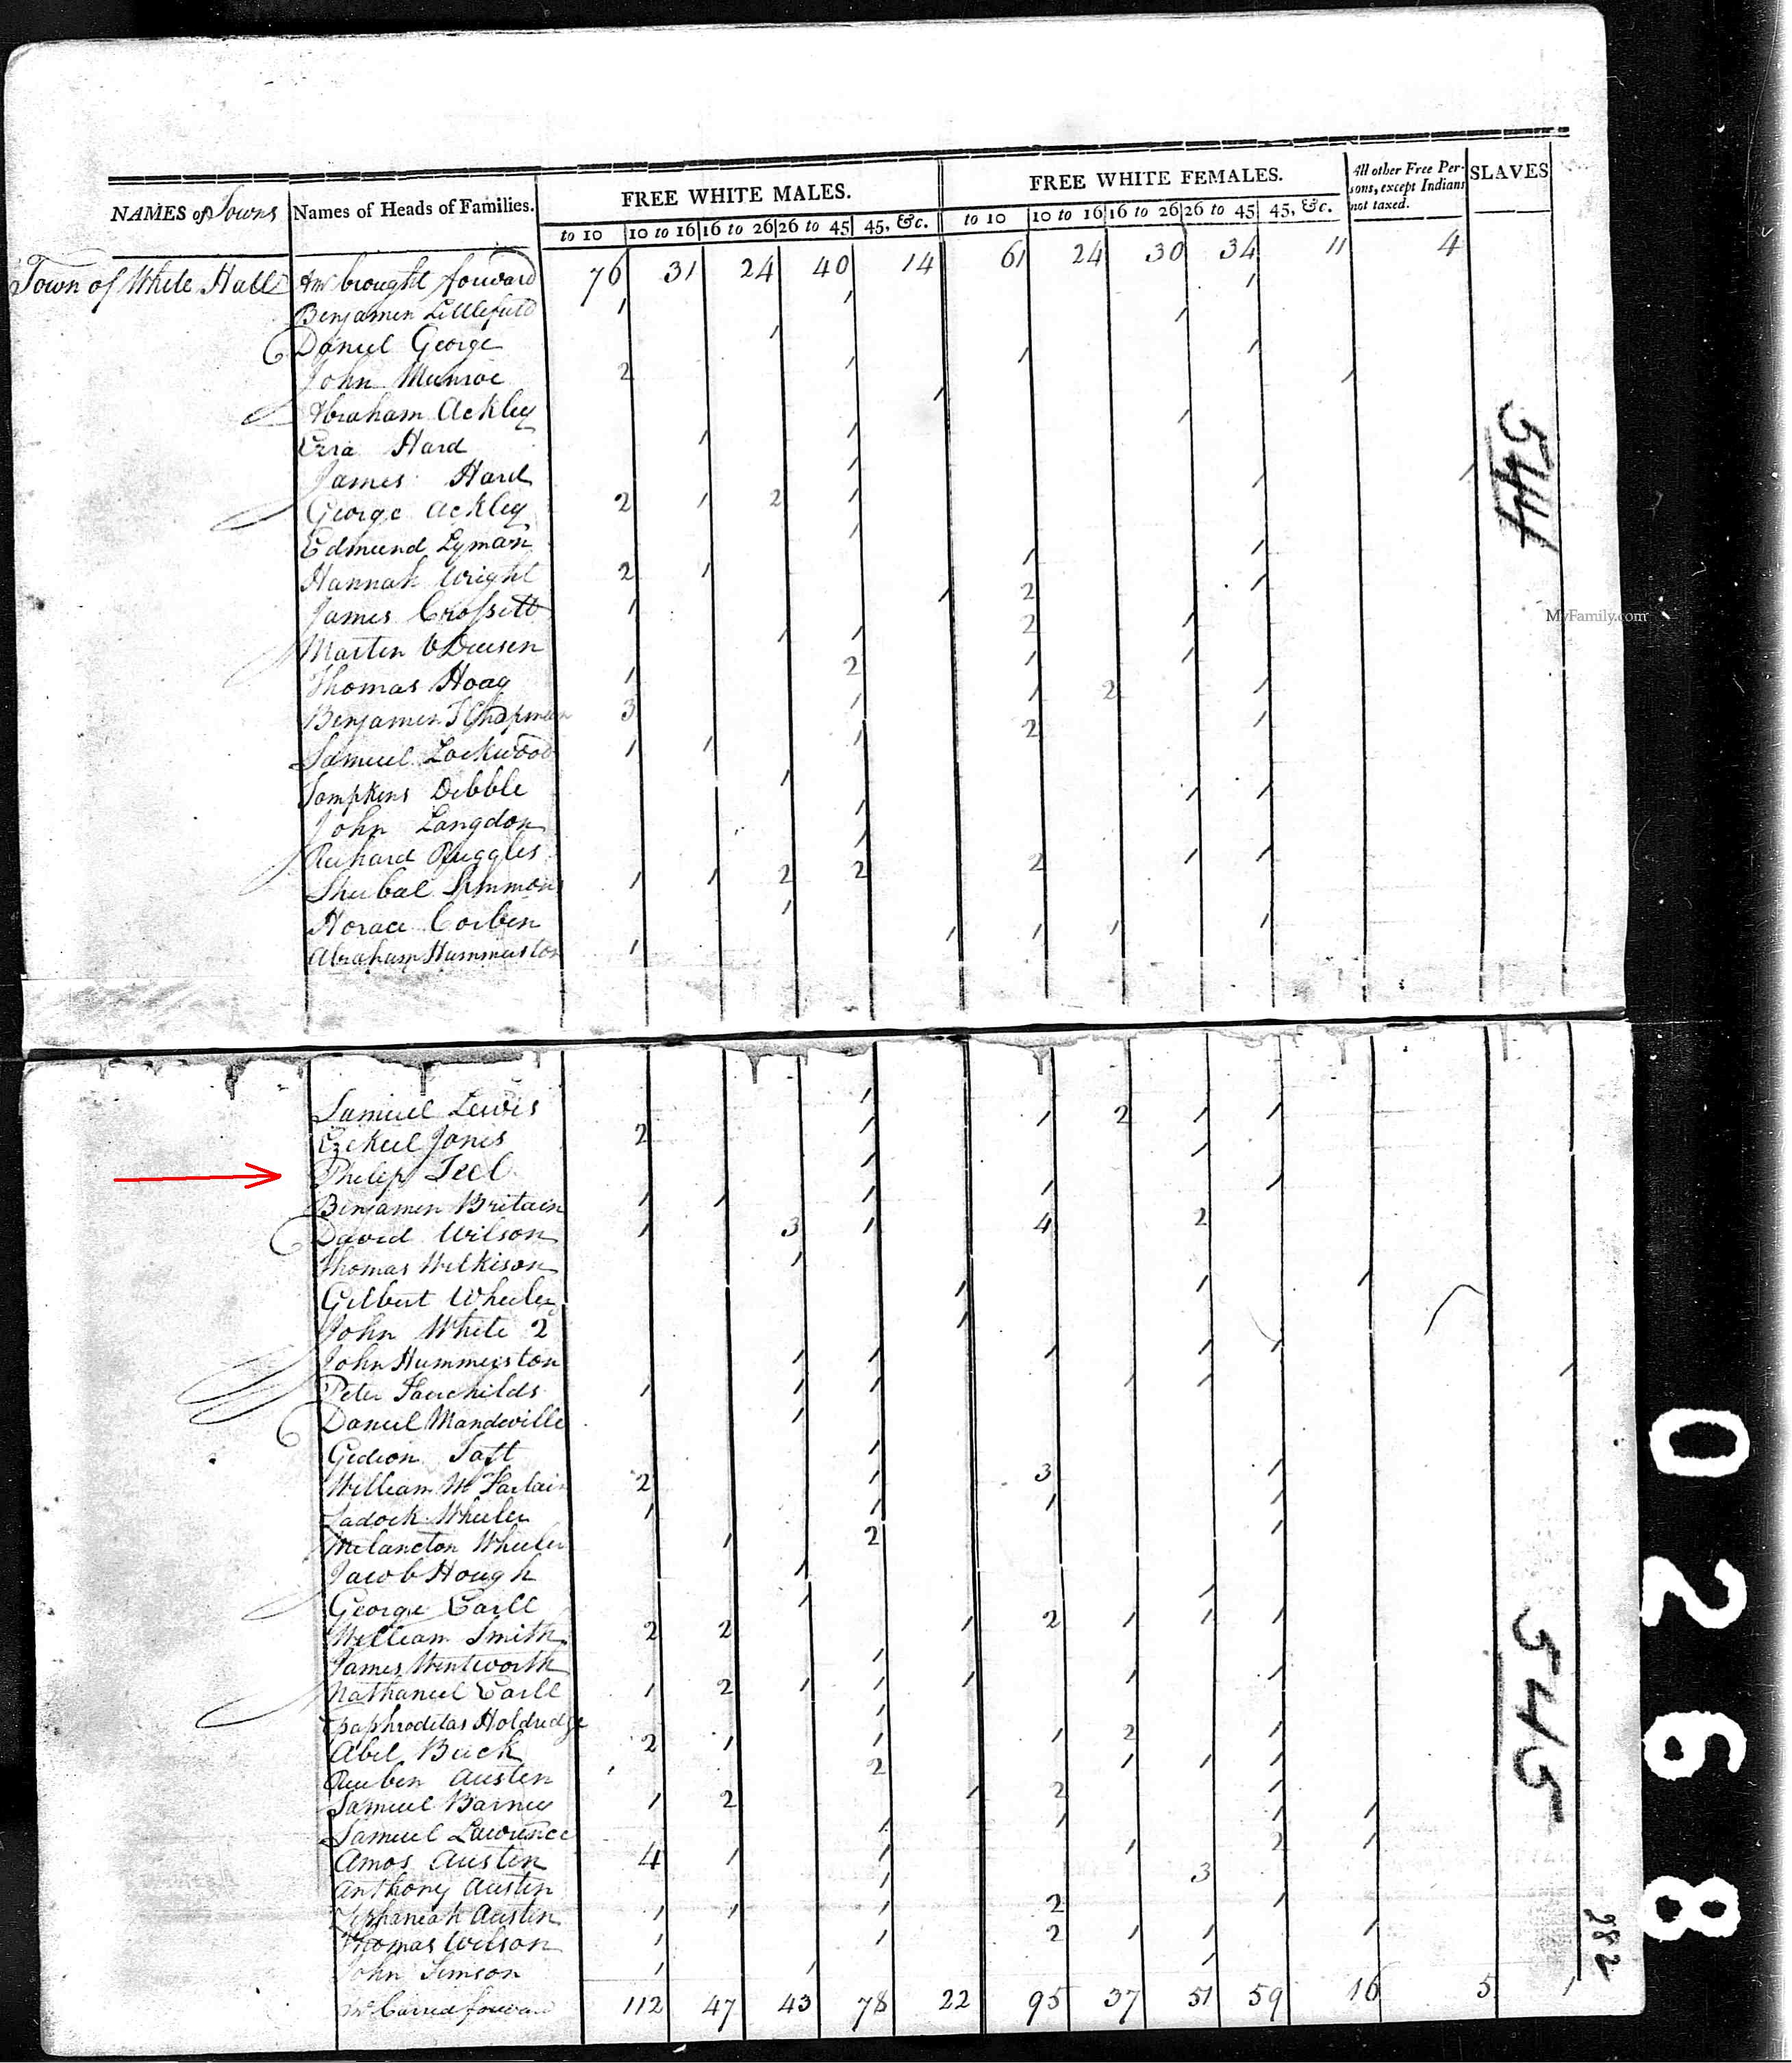 NAMES of Towns Names of Heads of Families. FREE WHITE MALES. FREE WHITE FEMALES. All other Free Per-sons, except Indians not taxed. SLAVES
to 10 10 to 16 16 to 26 26 to 45 45, &c. to 10 10 to 16 16 to 26 26 to 45 45, &c.
Town of White Hall Amt brought forward 76 31 24 40 14 61 24 30 34 11 4
Benjamin Littlefield 1 1 1
Daniel George 1 1
John Munroe 2 1 1 1
Abraham Ackley 1 1
Ezra Hard 1 1 1
James Hard 1
George Ackley 2 1 2 1 1 1
Edmund Lyman 1
Hannah Wright 2 1 1 1
James Crossett 1 1 2 1
Martin V Deusen 1 1 2 1
Thomas Hoag 1 2 1 1
Benjamin J Chapman 3 1 1 2 1
Samuel Lockwood 1 1 1 2 1
Tompkins Dibble 1
John Langdon 1 1 1
Richard Ruggles 1
Shubal Simmons 1 1 2 2 2 1 1
Horace Corben 1
Abraham Hummiston 1 1 1 1 1
544
MyFamily.com
Samuel Lewis 1
Ezekiel Jones 2 1 1 2 1 1
Philip Teel 1 1
Benjamin Britain 1 1 1 1 1
David Wilson 1 3 1 4 2
Thomas Wilkison 1
Gilbert Wheeler 1 1 1
John White 2 1
John Hummerston 1 1 1 1 1
Peter Fairchilds 1 1 1 1 1 1
Daniel Mandeville 1
Gideon Taft 1
William McFarlain 2 1 3 1
Zadock Wheeler 1 1 1 1
Melancton Wheeler 1 2 1
Jacob Hough 1
George Carll 1 1
William Smith 2 2 1 2 1 1 1
James Wentworth 1
Nathaniel Carll 1 2 1 1 1 1 1
Epaphroditas Holdredge 1
Abel Buck 2 1 1 1 2 1
Reuben Austen 1 2 1 1 1
Samuel Barney 1 2 1 2 1
Samuel Lawrence 1 1 1 1
Amos Austen 4 1 1 1 2 1
Anthony Austen 1 3
Zephaniah Austen 1 1 1 2 1
Thomas Wilson 1 1 2 1 1 1
John Simson 1 1 1
Amt Carried forward 112 47 43 78 22 95 37 51 59 16 5 1
545
282
0268